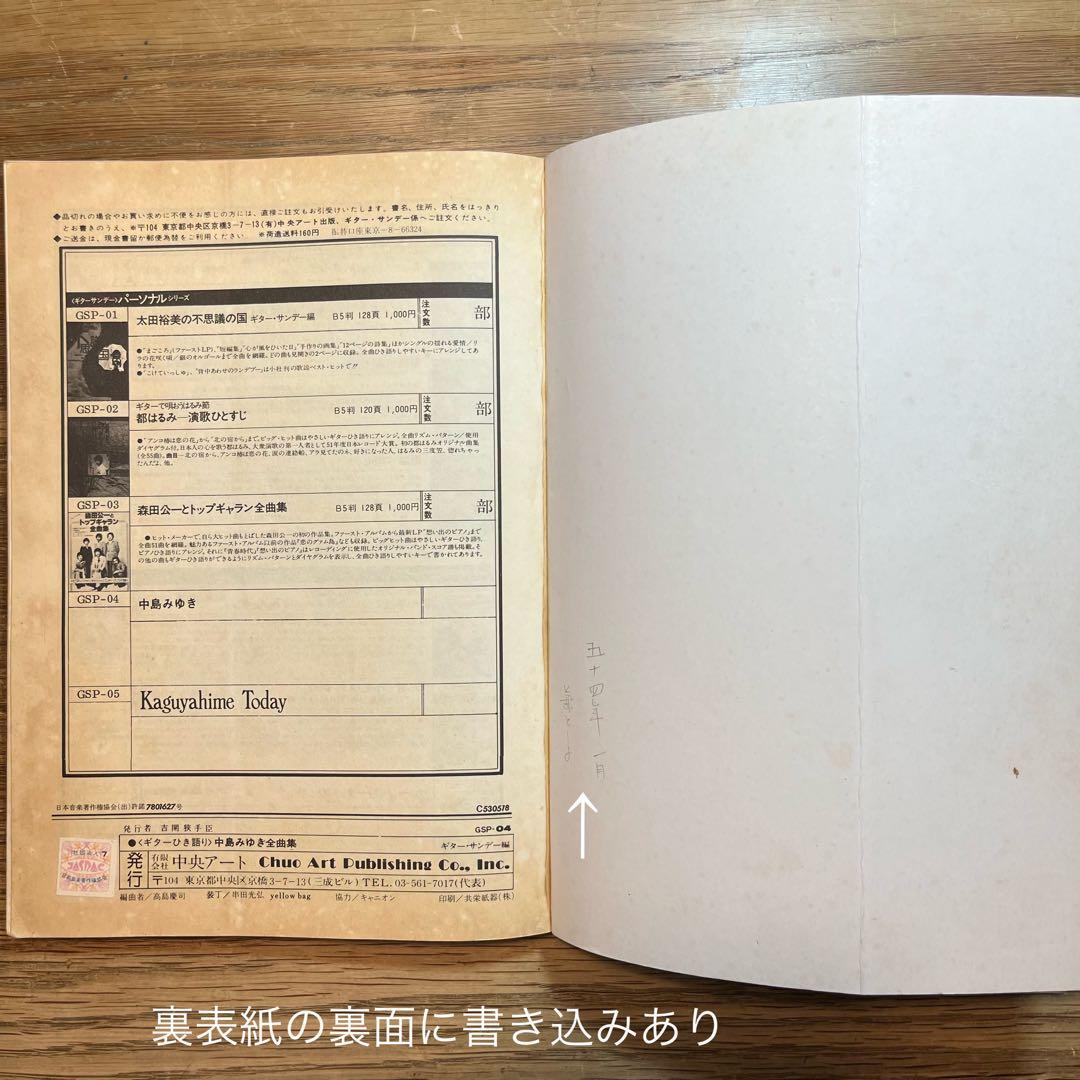 ◆品切れの場合やお買い求めに不便をお感じの方には、直接ご註文もお引受けいたします。書名、住所、氏名をはっきり
とお書きのうえ、※〒104 東京都中央区京橋3-7-13(有)中央アート出版、ギター・サンデー係へご註文ください。
◆ご送金は、現金書留か郵便為替をご利用ください。 ※荷造送料160円 振替口座東京-8-66324
〈ギターサンデー〉パーソナルシリーズ
GSP-01
太田裕美の不思議の国 ギター・サンデー編 B5判 128頁 1,000円 注文数 部
●"まごころ"(ファーストLP)、"短編集"、"心が風をひいた日"、"手作りの画集"、"12ページの詩集"ほかシングルの揺れる愛情/リ
ラの花咲く頃/銀のオルゴールまで全曲を網羅。どの曲も見開きの2ページに収録。全曲ひき語りしやすいキーにアレンジしてあ
ります。
●"こけてぃっしゅ"、"背中あわせのランデブー"は小社刊の歌謡ベスト・ヒットで!!
GSP-02
ギターで唄おうはるみ節
都はるみ―演歌ひとすじ B5判 120頁 1,000円 注文数 部
●"アンコ椿は恋の花"から"北の宿から"まで、ビッグ・ヒット曲はやさしいギターひき語りにアレンジ。全曲リズム・パターン/使用
ダイヤグラム付。日本人の心を歌う都はるみ、大衆演歌の第一人者として51年度日本レコード大賞。初の都はるみオリジナル曲集
(全55曲)。曲目―北の宿から、アンコ椿は恋の花、涙の連絡船、アラ見てたのネ、好きになった人、はるみの三度笠、惚れちゃっ
たんだよ、他。
GSP-03
森田公一とトップギャラン全曲集 B5判 128頁 1,000円 注文数 部
森田公一と
トップギャラン
全曲集
●ヒット・メーカーで、自ら大ヒット曲もとばした森田公一の初の作品集。ファースト・アルバムから最新LP"想い出のピアノ"まで
全曲51曲を網羅。魅力あるファースト・アルバム以前の作品『恋のグァム島』なども収録。ビッグヒット曲はやさしいギターひき語り、
ピアノひき語りにアレンジ。それに『青春時代』『想い出のピアノ』はレコーディングに使用したオリジナル・バンド・スコア譜も掲載。そ
の他の曲もギターひき語りができるようにリズム・パターンとダイヤグラムを表示し、全曲ひき語りしやすいキーで書かれてあります。
GSP-04
中島みゆき
GSP-05
Kaguyahime Today
日本音楽著作権協会(出)許諾7801627号 C530518
発行者 吉開狭手臣 GSP-04
●〈ギターひき語り〉中島みゆき全曲集 ギター・サンデー編
発行 有限会社 中央アート Chuo Art Publishing Co., Inc.
〒104 東京都中央区京橋3-7-13(三成ビル)TEL.03-561-7017(代表)
編曲者/高島慶司 装丁/串田光弘 yellow bag 協力/キャニオン 印刷/共栄紙器(株)
JASRAC
五十四年 一月
裏表紙の裏面に書き込みあり